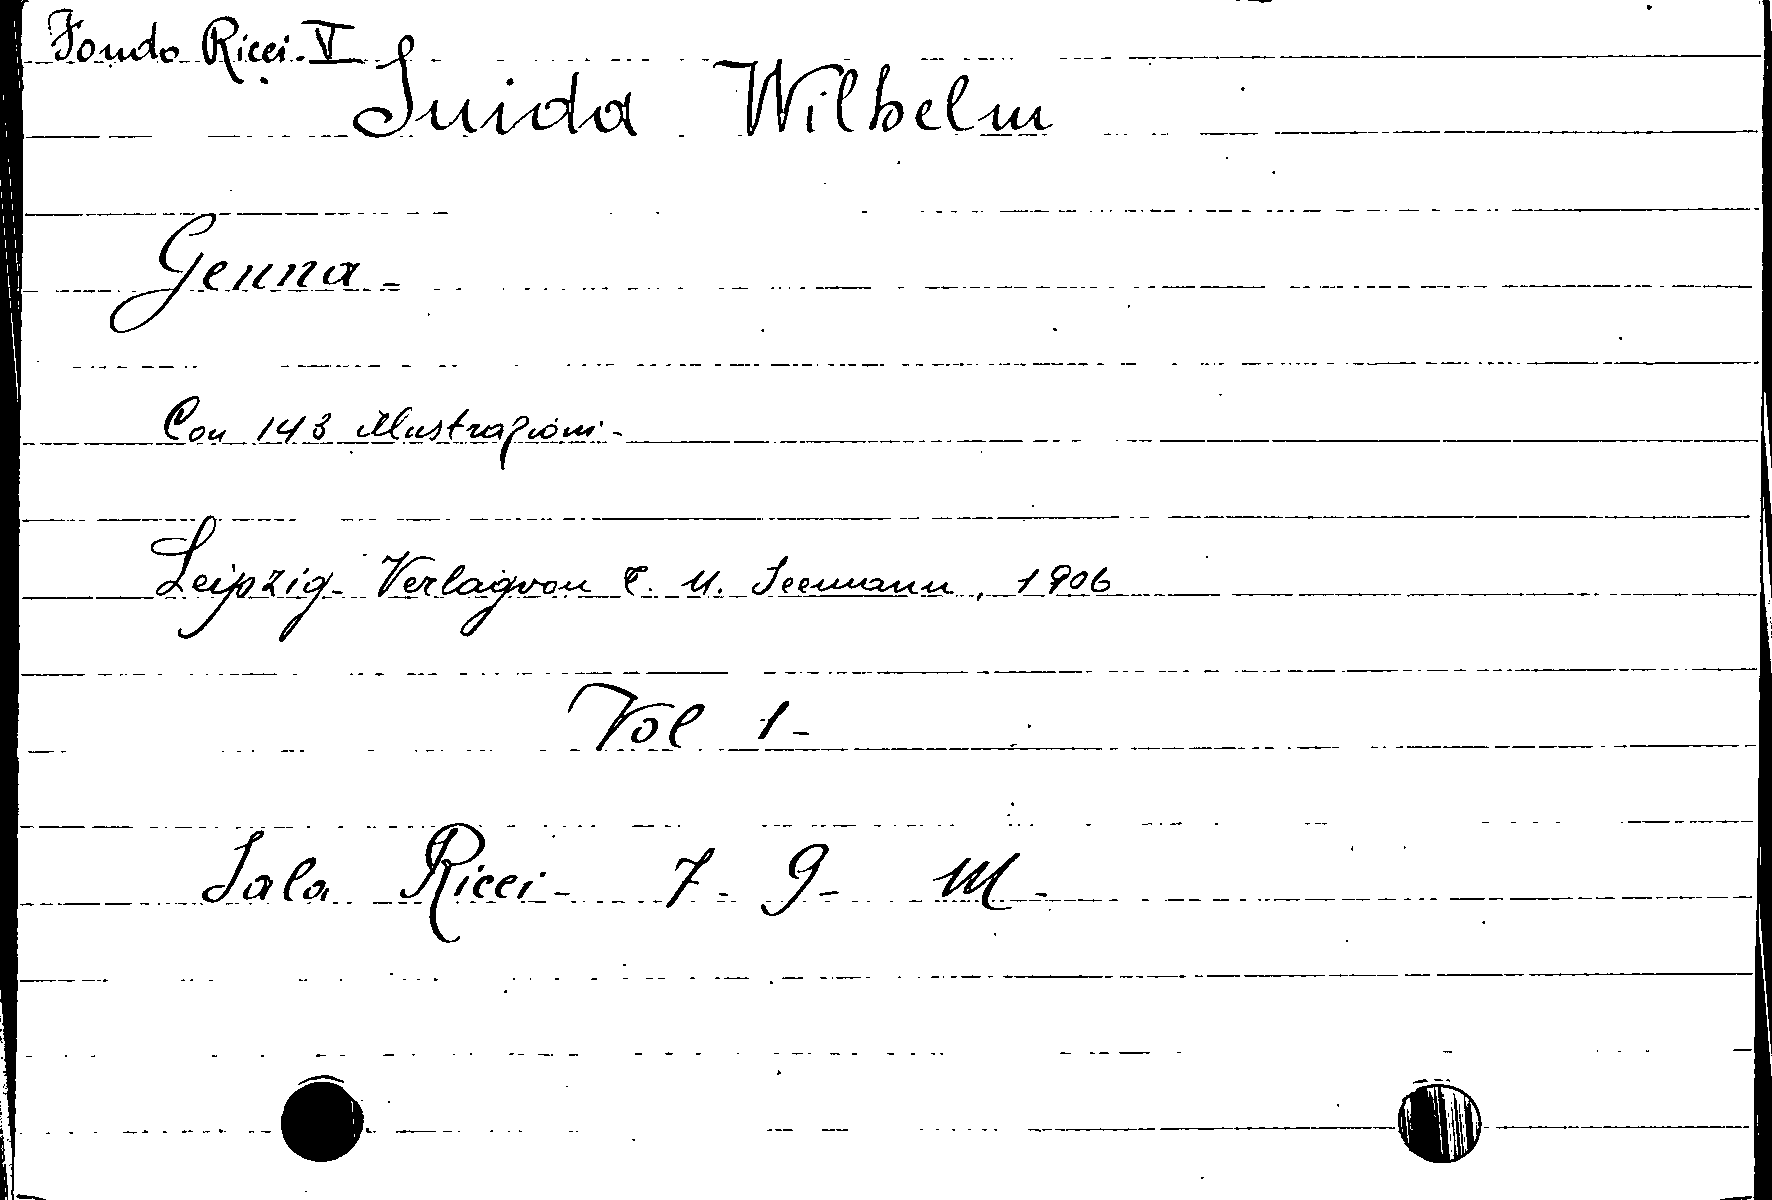 Fondo Ricci. V
Suida Wilhelm
Genua -
Con 143 illustrazioni -
Leipzig - Verlagvon E. A. Seemann, 1906
Vol 1 -
Sala Ricci - 7 - 9 - M -